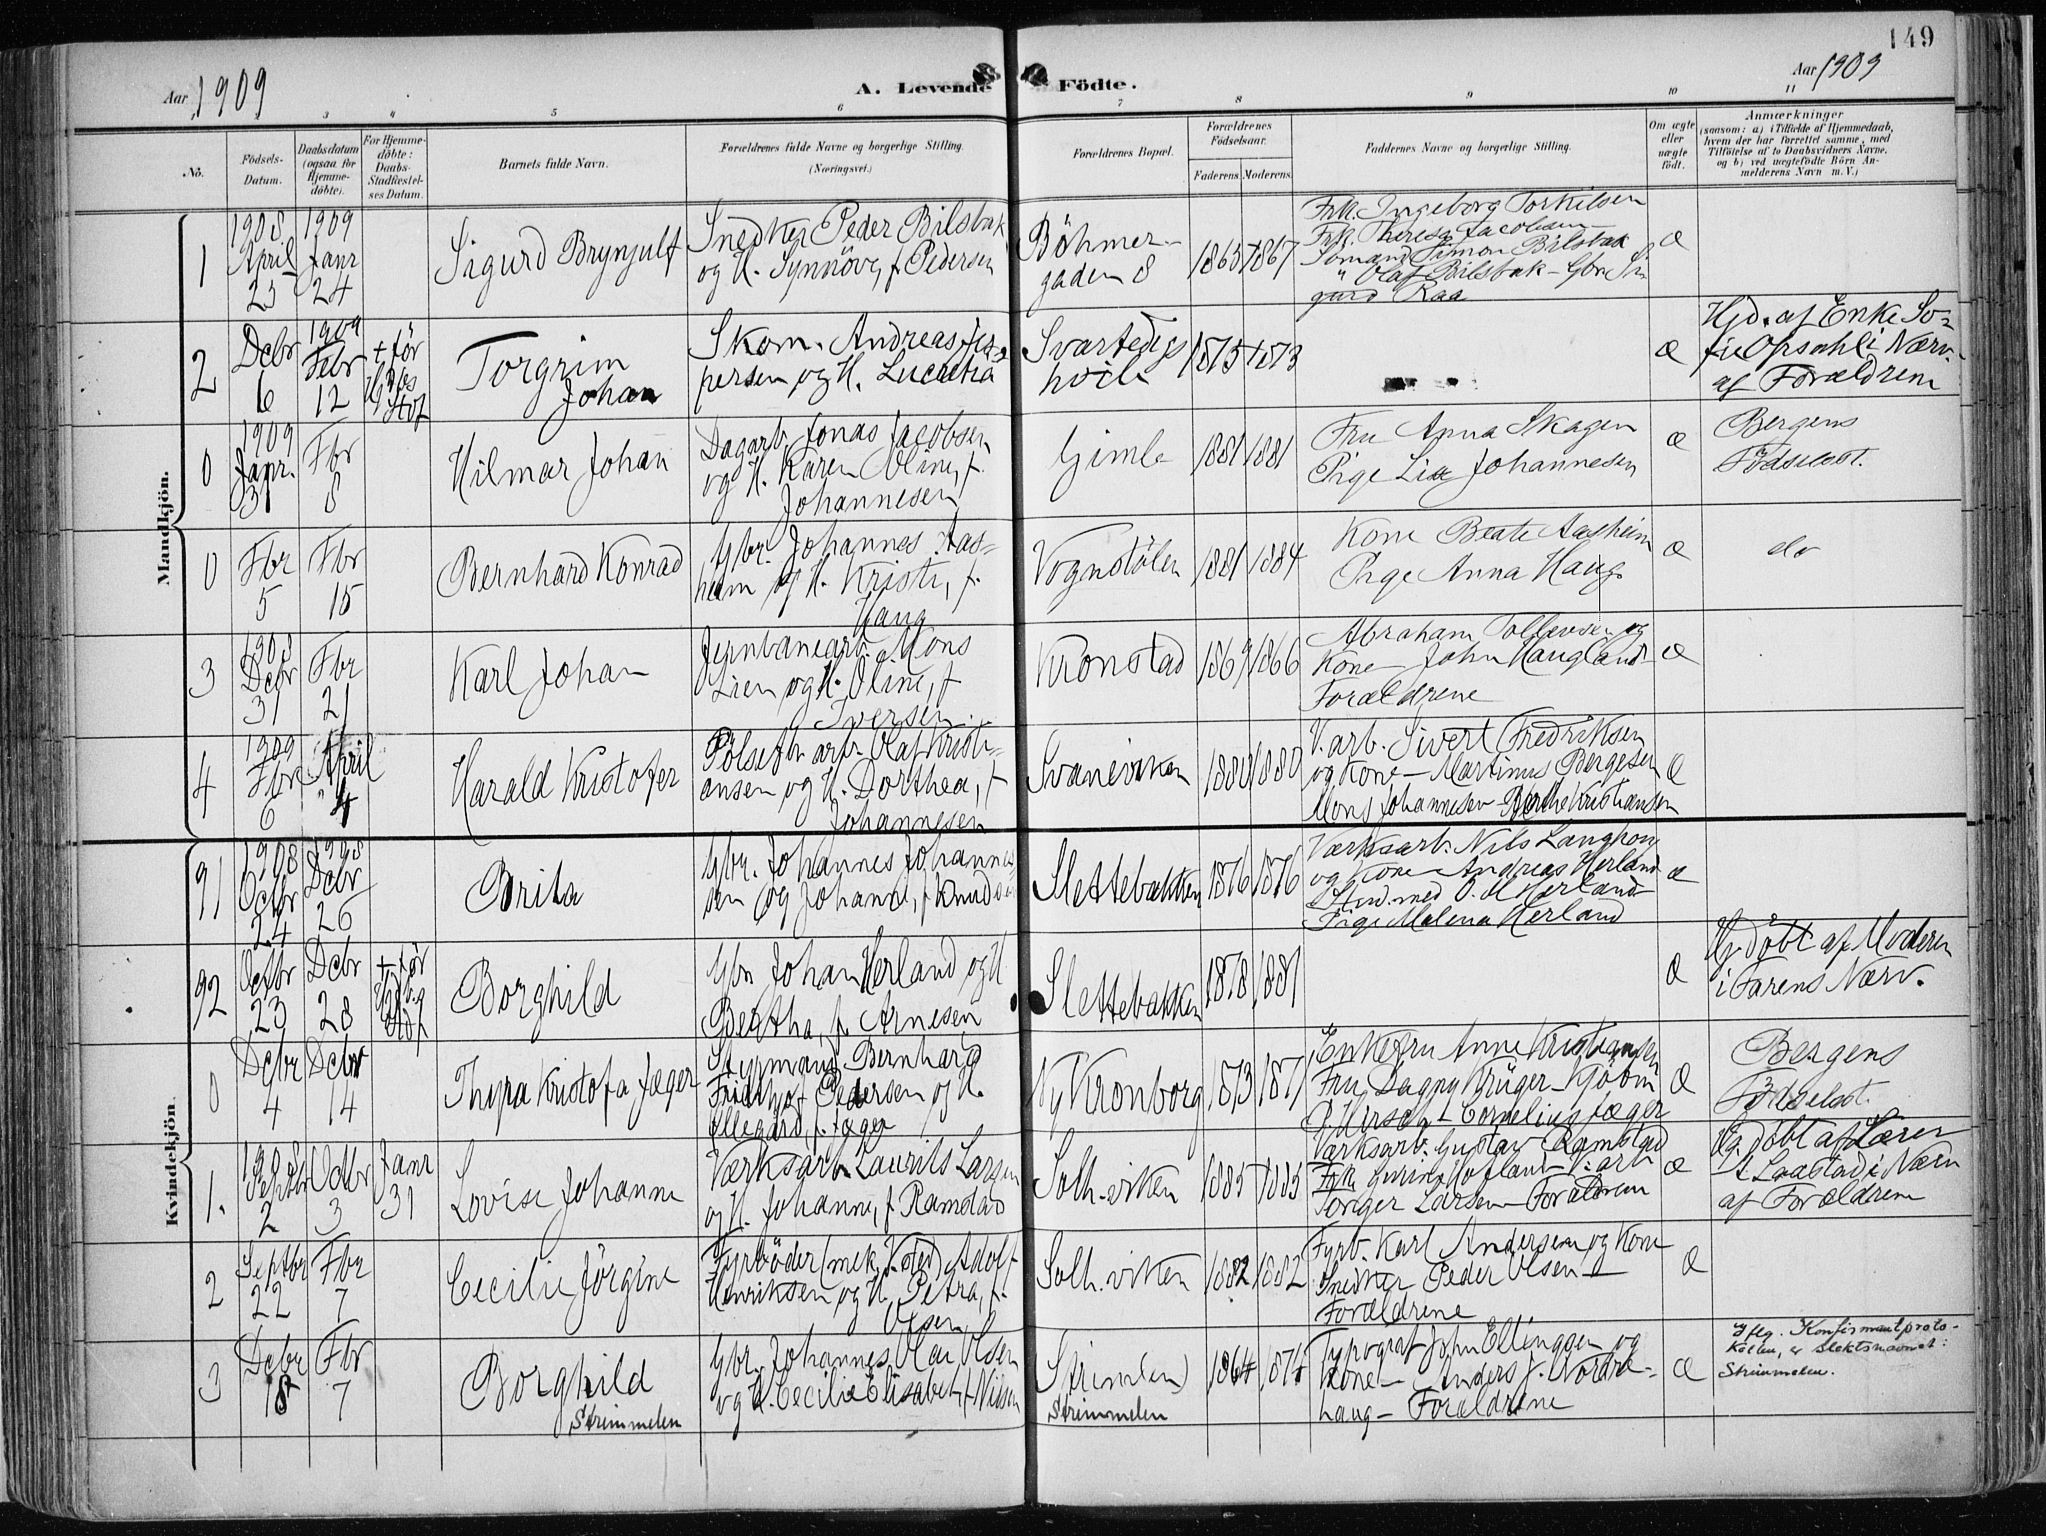 149
Aar 1909
A. Levende Födte.
Aar 1909
1 2 3 4 5 6 7 8 9 10 11
No.
Fødsels-Datum.
Daabsdatum (ogsaa for Hjemmedøbte).
For Hjemmedøbte: Daabs-Stadfæstelses Datum.
Barnets fulde Navn.
Forældrenes fulde Navne og borgerlige Stilling. (Næringsvei.)
Forældrenes Bopæl.
Forældrenes Födselsaar.
Faderens. Moderens.
Faddernes Navne og borgerlige Stilling.
Om ægte eller uægte født.
Anmærkninger
(saasom: a) i Tilfælde af Hjemmedaab, hvem der har forrettet samme, med Tilføielse af to Daabsvidners Navne, og b) ved uægtefødte Börn Anmelderens Navn m. V.)
Mandkjön.
1
1908 April 23
1909 Janr 24
Sigurd Brynjulf
Snedker Peder Bilsbak
og H. Synnöve, f. Pedersen
Böhmer-
gaden 8
1865 1867
Frk. Ingeborg Torkilsen
Frk. Theresa Jacobsen
Sömand Simon Bilsbak
" Olaf Bilsbak - Gbr. Si
gurd Raa
æ
2
Dcbr 6
1909 Febr 12
+ för
Stdf
Torgrim
Johan
Skom. Andreas Jes-
persen og H. Lucretia
Svartedigs
1875 1873
æ
Hjd. af Enke So-
fie Opsahl i Nærv.
af Forældrene
0
1909 Janr. 31
Fbr 8
Hilmar Johan
Dagarb. Jonas Jacobsen
og H. Karen Oline, f.
Johannesen
Gimle
1881 1881
Fru Anna Skagen
Pige Lise Johannesen
æ
Bergens
Födselsst.
0
Fbr 5
Fbr 15
Bernhard Konrad
Gbr. Johannes Aas-
heim og H. Kristi, f.
Haug
Vognstölen
1881 1884
Kone Beate Aasheim
Pige Anna Haug
æ
do
3
1908 Dcbr 31
Fbr 21
Karl Johan
Jernbanearb. Mons
Lien og H. Oline, f.
Iversen
Kronstad
1869 1866
Abraham Tollevsen og
Kone - John Haugland -
Forældrene
æ
4
1909 Fbr 6
April 4
Harald Kristofer
Pölsefbr. arb. Olaf Kristi-
ansen og H. Dorthea, f.
Johannesen
Svaneviken
1880 1880
V. arb. Sivert Fredriksen
og Kone - Martinus Bergesen
Mons Johannesen - Berthe Kristiansen
æ
Kvindekjön.
91
1908 Octbr 24
1908 Dcbr 26
Brita
Gbr. Johannes Johannes
sen og Johanne, f. Knudsen
Slettebakken
1876 1876
Værksarb. Nils Langhon
og Kone - Andreas Herland
Stud. med. O. H. Herland
Pige Malena Herland
æ
92
Octbr 23
Dcbr 28
+ för
Stdf
Borghild
Gbr. Johan Herland og H
Bertha, f. Arnesen
Slettebakken
1878 1881
æ
Hj. döbt af Moderen
i Farens Nærv.
0
Dcbr 4
Dcbr 14
Thyra Kristofa Jæger
Styrmand Bernhard
Fridtjof Pedersen og H.
Ellegard, f. Jæger
Ny Kronborg
1873 1877
Enkefru Anne Kristiansen
Fru Dagny Krüger - Kjöbm
P. Hirsch - Cornelius Jæger
æ
Bergens
Födselsst.
1.
1908 Septbr 2
Octbr 3
Janr 31
Lovise Johanne
Værksarb. Laurits Larsen
og H. Johanne, f. Ramstad
Solh.viken
1885 1885
Værksarb. Gustav Ramstad
Frk. Guri Hofland - V. arb
Torger Larsen - Forældrene
æ
Hj. döbt af Lærer
Laastad i Nærv
af Forældrene
2
Septbr 22
Fbr 7
Cecilie Jörgine
Fyrböder (mek. V.sted) Adolf
Henriksen og H. Petra, f.
Olsen
Solh.viken
1882 1882
Fyrb. Karl Andersen og Kone
Snedker Peder Olsen -
Forældrene
æ
3
Dcbr 18
Fbr 7
Borghild
Strimmelen
Gbr. Johannes Olai Olsen
og H. Cecilie Elisabet, f. Nilsen
Strimlen
Strimmelen
1864 1874
Typograf John Ellingsen og
Kone - Anders J. Nordre-
haug - Forældrene
æ
Iflg. Konfirmantproto-
kollen, er slektsnavnet:
Strimmelen.